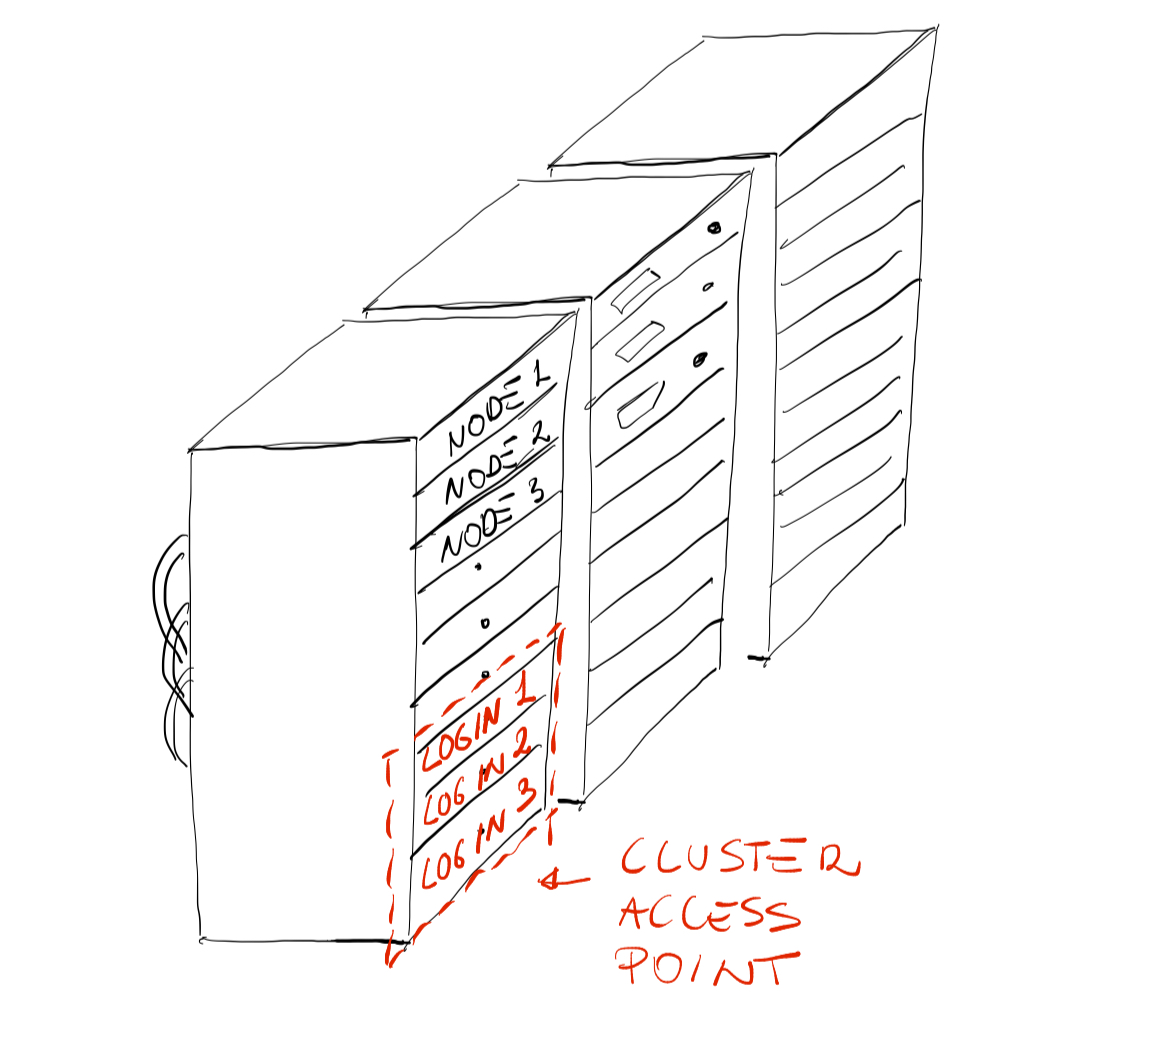 NODE 1
NODE 2
NODE 3
LOGIN 1
LOGIN 2
LOGIN 3
CLUSTER
ACCESS
POINT